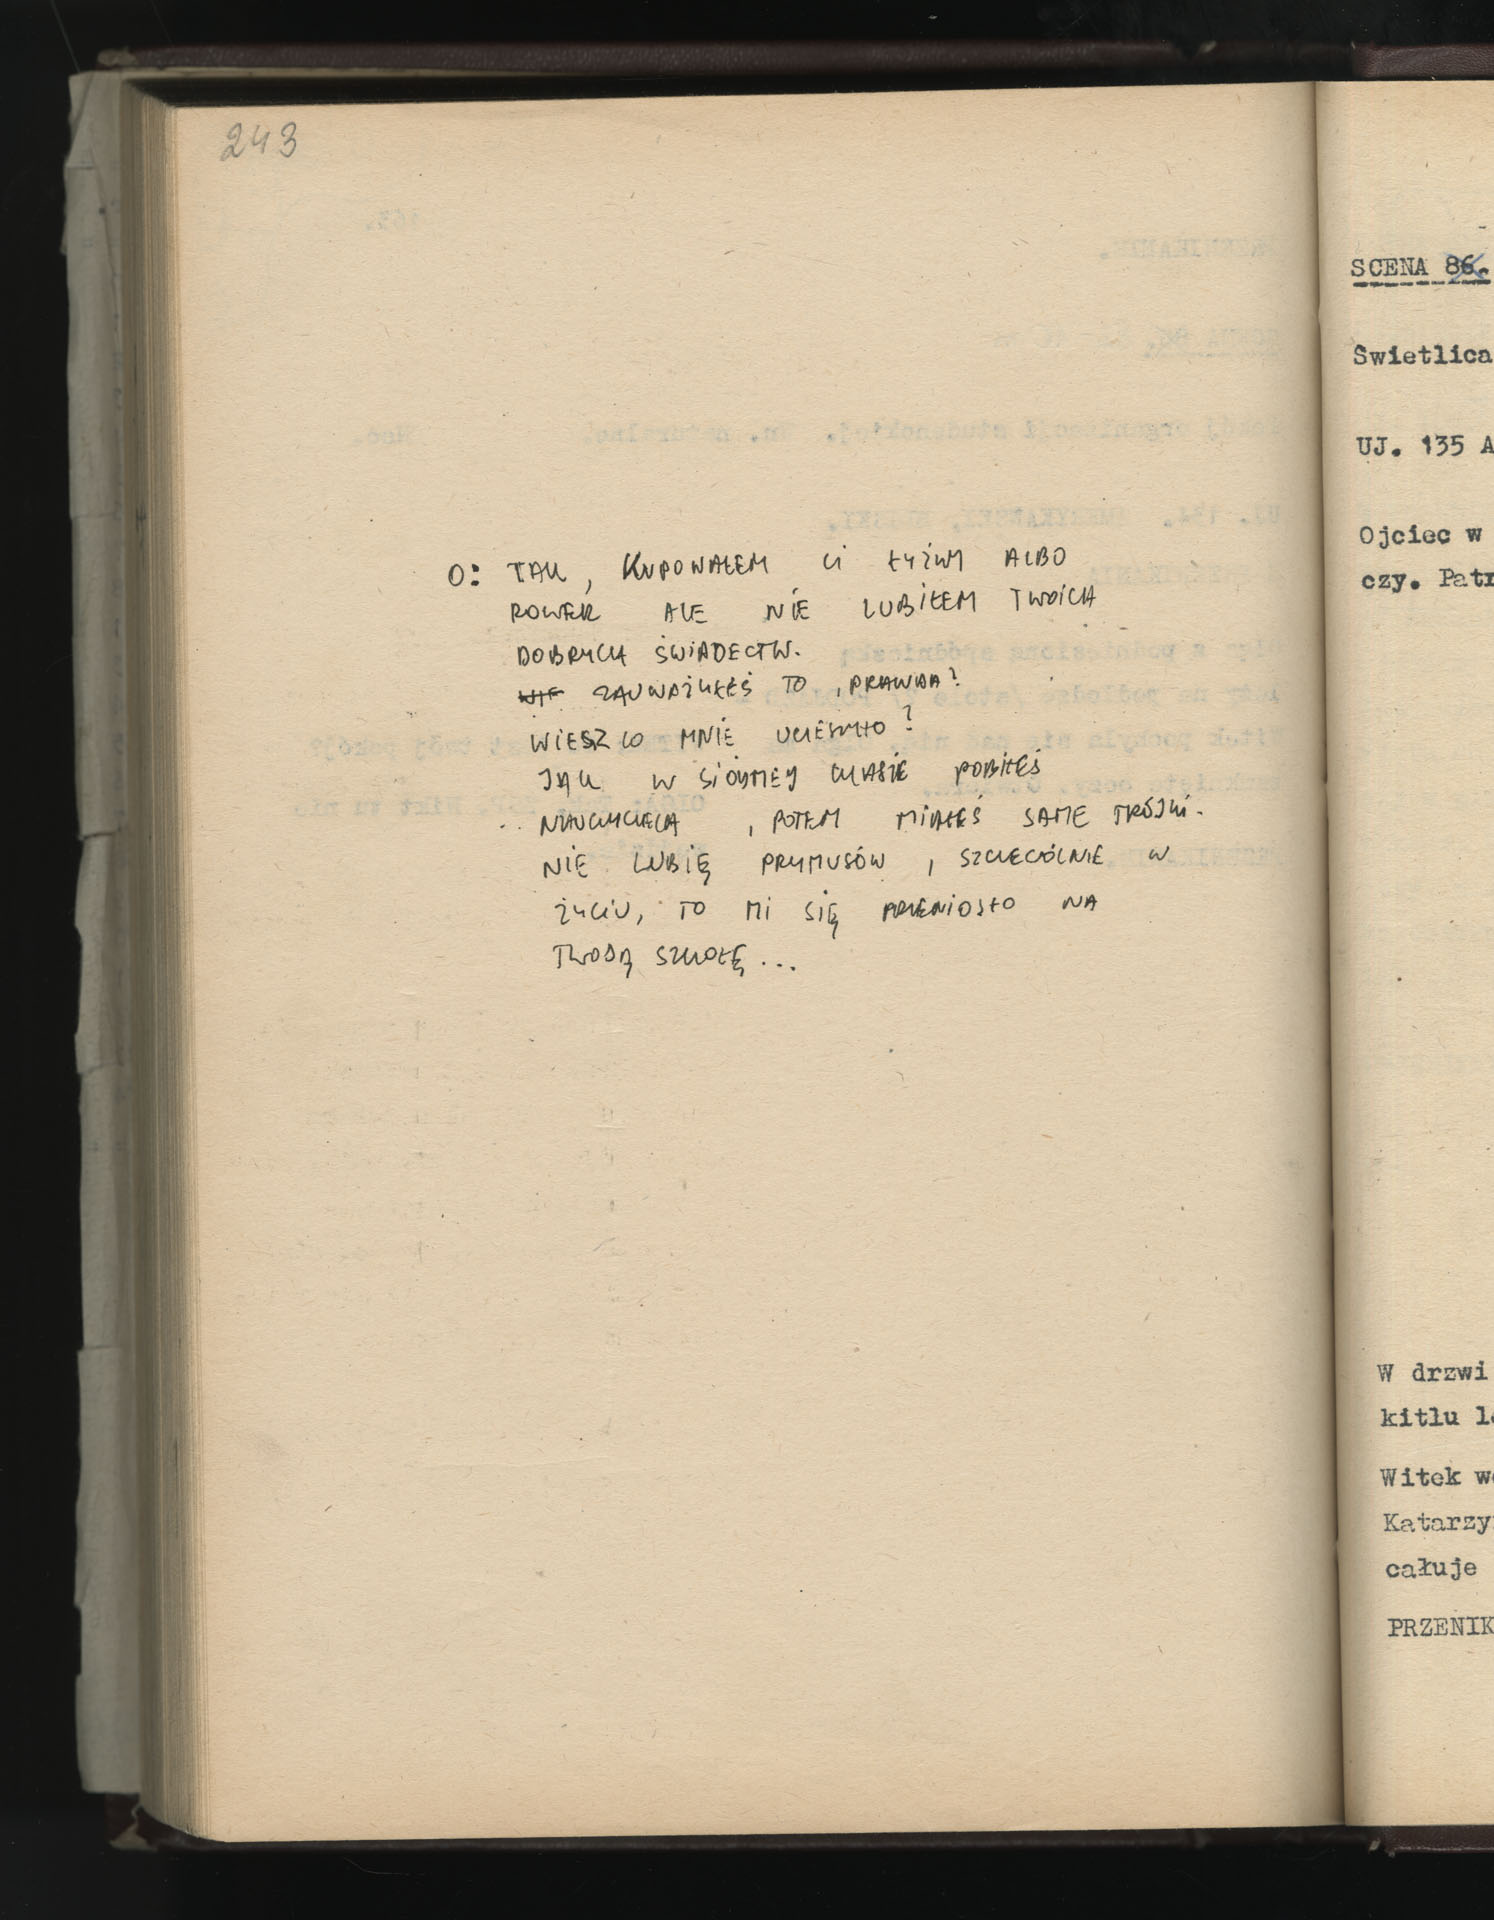 243
O: TAK, KUPOWAŁEM CI ŁYŻWY ALBO
ROWER ALE NIE LUBIŁEM TWOICH
DOBRYCH ŚWIADECTW.
NIE ZAUWAŻYŁEŚ TO, PRAWDA?
WIESZ CO MNIE UCIESZYŁO?
JAK W SIÓDMEJ KLASIE POBIŁEŚ
NAUCZYCIELA, POTEM MIAŁEŚ SAME TRÓJKI.
NIE LUBIĘ PRYMUSÓW, SZCZEGÓLNIE W
ŻYCIU, TO MI SIĘ PRZENIOSŁO NA
TWOJĄ SZKOŁĘ...
SCENA 86.
Swietlica
UJ. 135 A
Ojciec w
czy. Patr
W drzwi
kitlu l
Witek w
Katarzy
całuje
PRZENIK